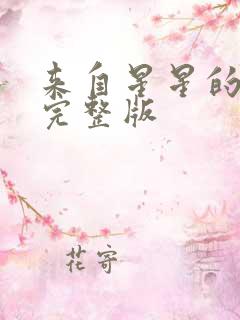 来自星星的
完整版
花寄